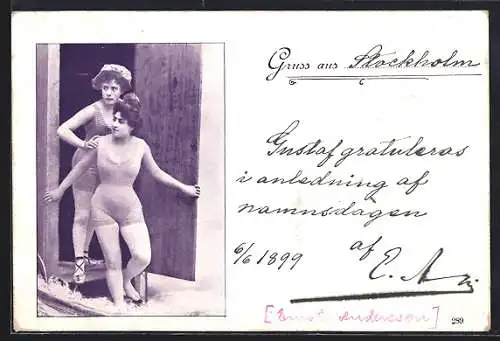 Gruss aus Stockholm
Gustaf gratuleras
i anledning af
namnsdagen
6/6 1899
af
E. An
[Ernst Andersson]
289